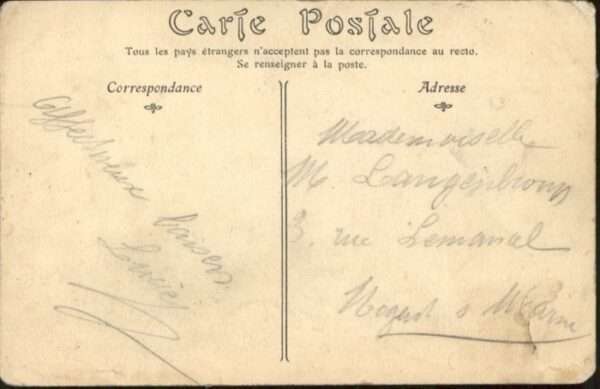 Carte Postale
Tous les pays étrangers n'acceptent pas la correspondance au recto.
Se renseigner à la poste.
Correspondance
Affectueux baisers
Adresse
Mademoiselle
M.
3, rue
Nogent s Marne